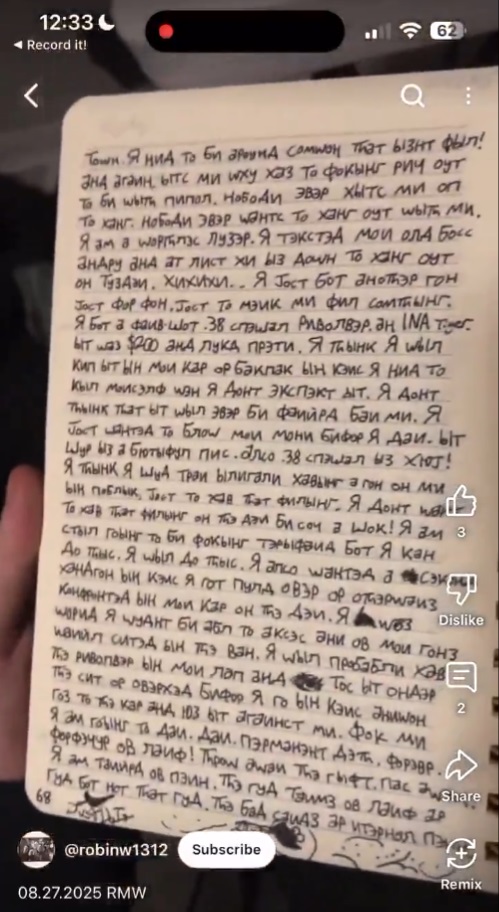 12:33
62
◂ Record it!
Тоwн. Я НИД То Би ароунд Сомwон Тhат ызнт Фыл!
анд агаин, ытс ми wху хаз То фокынг рич оут
То Би wыth пипол. Нободи эвэр хытс ми оп
То ханг. Нободи эвэр wантс То ханг оут wыth ми.
Я ам а wорthлэс Лузэр. Я тэкстэд мои олд Босс
андру анд ат лист хи ыз доwн То ханг оут
он Туздаи. Хихихи.. Я Јост Бот анотhэр гон
Јост фор фон. Јост То мэик ми фил сомthынг.
Я Бот а фаив-шот .38 спэшал Риволвэр. ан INA Tiger.
ыт wаз $200 анд лукд прэти. Я Тhынк Я wыл
кип ыт ын мои кар ор бакпак ын кэис Я нид То
кыл моисэлф wэн Я донт экспэкт ыт. Я донт
thынк that ыт wыл эвэр би фаийрд баи ми. Я
Јост wантэд То блоw мои мони бифор Я даи. ыт
шур ыз а бютыфул пис. алсо .38 спэшал ыз хют!
Я thынк Я шуд траи ылигали хавынг а гон он ми
ын поблык. Јост То хав that филынг. Я донт
То хав that филынг он thэ даи би соч а шок! Я ам
стыл гоынг то би фокынг тэрыфаид бот Я кан
до thыс. Я wыл до thыс. Я алсо wантэд а
хандгон ын кэис Я гот пулд овэр ор отhэрwаиз
конфронтэд ын мои кар он thэ даи. Я wоз
wорид Я wуднт би абл то аксэс ани ов мои гонз
wаийл ситэд ын thэ ван. Я wыл пробабли хав
thэ риволвэр ын мои лап анд тос ыт ондэр
thэ сит ор овэрхэд бифор Я го ын кэис анишон
гоз то thэ кар анд юз ыт агаинст ми. Фок ми
Я ам гоынг то даи. Даи. Пэрманэнт дэth. Форэвр.
форфэчур ов лаиф! Throw аwаи thэ гыфт.
Я ам таийрд ов пэин. Thэ гуд таимз ов лаиф ар
гуд бот нот that гуд. Thэ бад саидз ар итэрнал
68
3
Dislike
2
Share
Remix
@robinw1312
Subscribe
08.27.2025 RMW